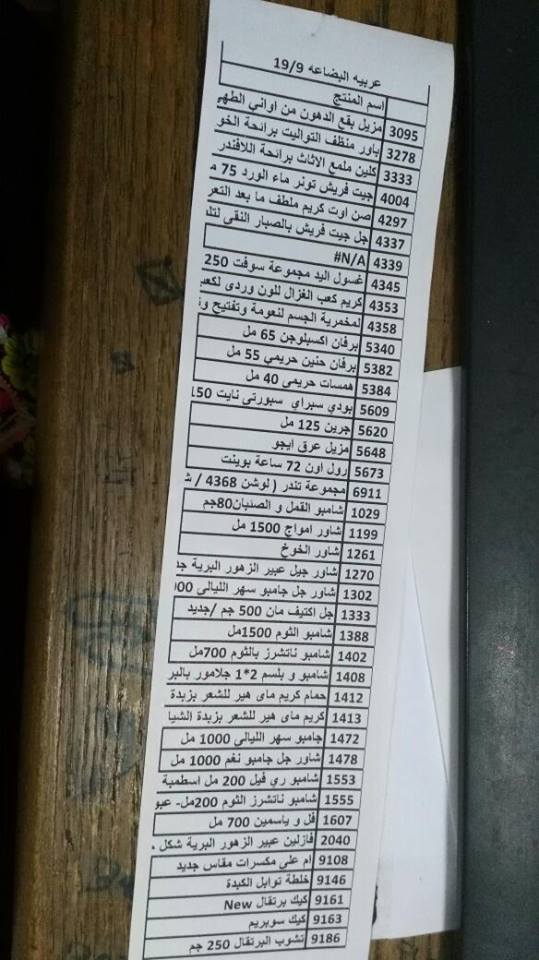 عربيه البضاعه 19/9
اسم المنتج
3095 مزيل بقع الدهون من اواني الطهي
3278 باور منظف التواليت برائحة الخو
3333 كلين ملمع الاثاث برائحة اللافندر
4004 جيت فريش تونر ماء الورد 75 م
4297 صن اوت كريم ملطف ما بعد التعر
4337 جل جيت فريش بالصبار النقى لتلط
4339 #N/A
4345 غسول اليد مجموعة سوفت 250
4353 كريم كعب الغزال للون وردى لكعب
4358 لمخمرية الجسم لنعومة وتفتيح و
5340 برفان اكسبلوجن 65 مل
5382 برفان حنين حريمي 55 مل
5384 همسات حريمي 40 مل
5609 بودي سبراي سبورتي نايت 150
5620 جرين 125 مل
5648 مزيل عرق ايجو
5673 رول اون 72 ساعة بوينت
6911 مجموعة تندر ( لوشن 4368 / ش
1029 شامبو القمل و الصئبان80جم
1199 شاور امواج 1500 مل
1261 شاور الخوخ
1270 شاور جيل عبير الزهور البرية جد
1302 شاور جل جامبو سهر الليالى 00
1333 جل اكتيف مان 500 جم /جديد
1388 شامبو الثوم 1500مل
1402 شامبو ناتشرز بالثوم 700مل
1408 شامبو و بلسم 2*1 جلامور بالبر
1412 حمام كريم ماى هير للشعر بزبدة
1413 كريم ماى هير للشعر بزبدة الشيا
1472 جامبو سهر الليالى 1000 مل
1478 شاور جل جامبو نغم 1000 مل
1553 شامبو ري فيل 200 مل اسطمبة
1555 شامبو ناتشرز الثوم 200مل- عبو
1607 فل و ياسمين 700 مل
2040 فازلين عبير الزهور البرية شكل
9108 ام على مكسرات مقاس جديد
9146 خلطة توابل الكبدة
9161 كيك برتقال New
9163 كيك سوبريم
9186 تشوب البرتقال 250 جم